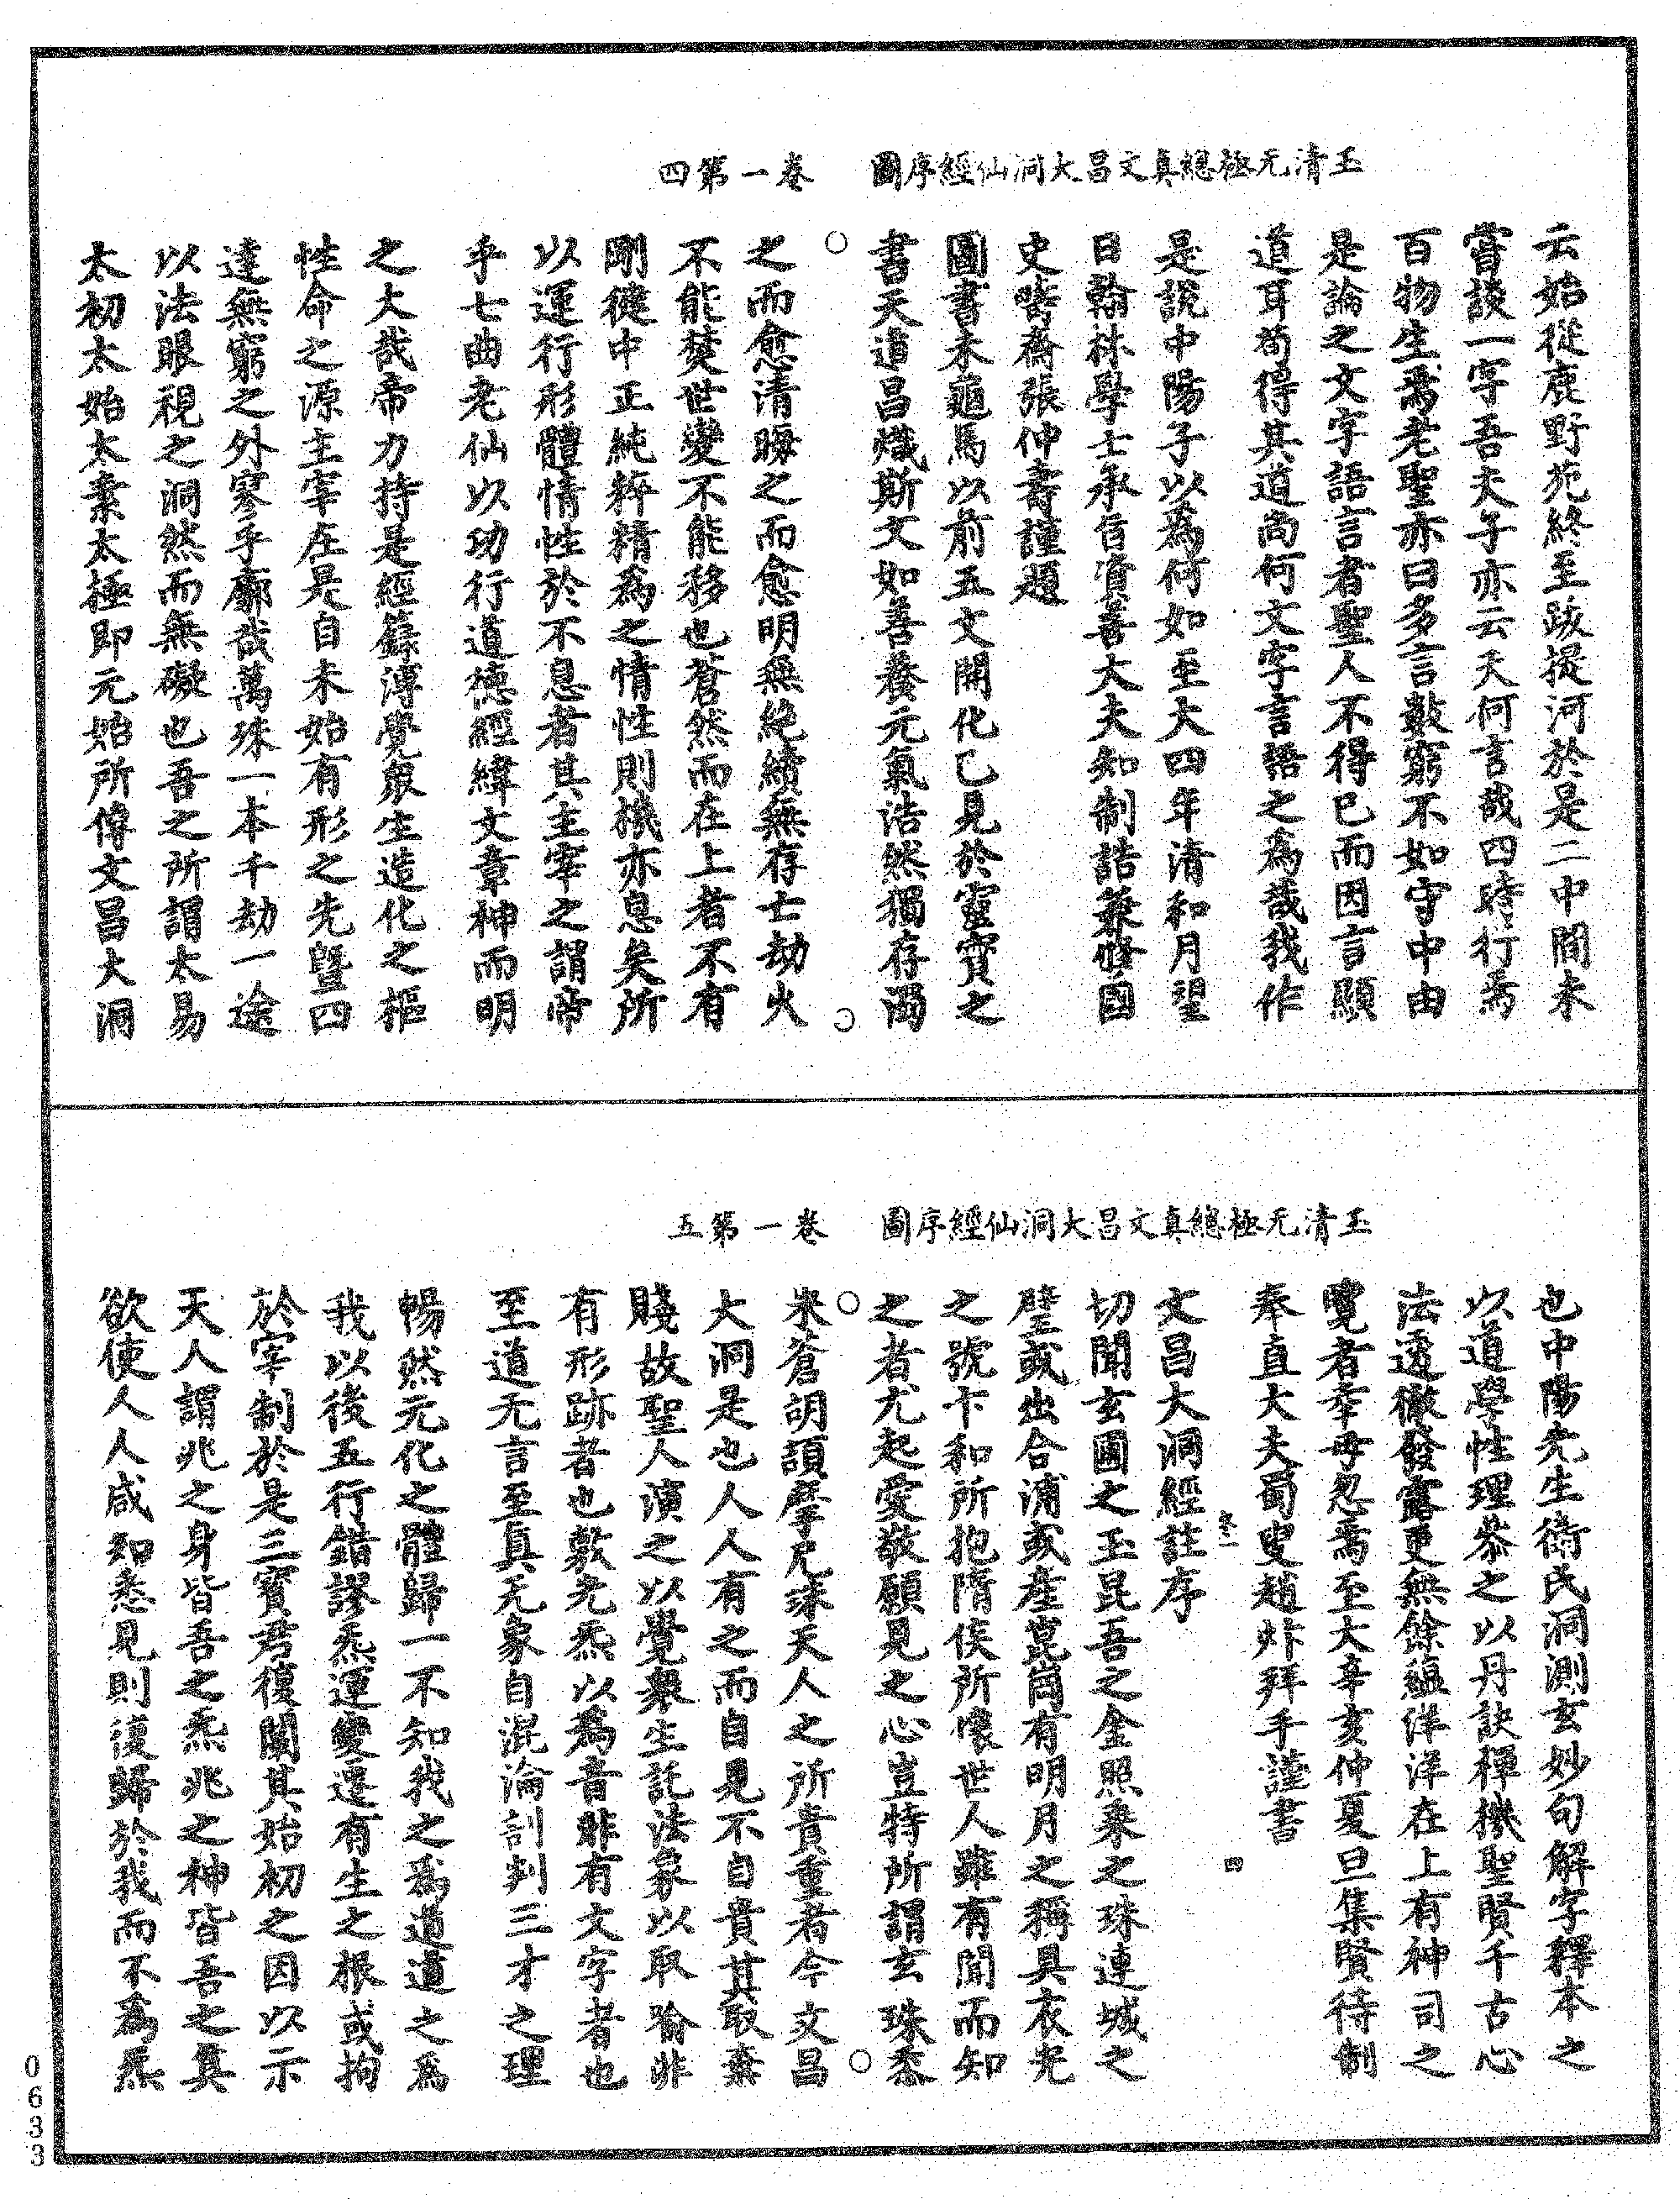 玉清无極總真文昌大洞仙經序圖　卷一第四
云始從鹿野苑終至跋提河於是二中間未
嘗談一字吾夫子亦云天何言哉四時行焉
百物生焉老聖亦曰多言數窮不如守中由
是論之文字語言者聖人不得已而因言顯
道耳苟得其道尚何文字言語之為哉我作
是說中陽子以為何如至大四年清和月望
日翰林學士承旨資善大夫知制誥兼修國
史疇齋張仲壽謹題
圖書未龜馬以前五文開化已見於靈寶之
書天道昌熾斯文如善養元氣浩然獨存濁
之而愈清晦之而愈明無絕續無存亡劫火
不能焚世變不能移也蒼然而在上者不有
剛健中正純粹精為之情性則機亦息矣所
以運行形體情性於不息者其主宰之謂帝
乎七曲老仙以功行道德經緯文章神而明
之大哉帝力持是經籙溥覺衆生造化之樞
性命之源主宰在是自未始有形之先曁四
達無窮之外寥乎廓哉萬殊一本千劫一途
以法眼視之洞然而無礙也吾之所謂太易
太初太始太素太極即元始所傳文昌大洞
玉清无極總真文昌大洞仙經序圖　卷一第五
也中陽先生衛氏洞測玄妙句解字釋本之
以道學性理恭之以丹訣禪機聖賢千古心
法透徹發露更無餘蘊洋洋在上有神司之
覽者幸毋忽焉至大辛亥仲夏旦集賢待制
奉直大夫蜀叟趙炞拜手謹書
文昌大洞經註序
切聞玄圃之玉昆吾之金照乘之珠連城之
璧或出合浦或產崑崗有明月之稱具衣光
之號卞和所抱隋侯所懷世人雖有聞而知
之者尤起愛敬願見之心豈特所謂玄珠黍
米蒼胡頭摩尼寀天人之所貴重者今文昌
大洞是也人人有之而自見不自貴其取棄
賤故聖人演之以覺衆生託法象以取喻非
有形跡者也敷光炁以為音非有文字者也
至道无言至真无象自混淪剖判三才之理
暢然元化之體歸一不知我之為道道之為
我以後五行錯謬炁運變遷有生之根或拘
於宰制於是三寶君復闡其始初之因以示
天人謂兆之身皆吾之炁兆之神皆吾之真
欲使人人咸知悉見則復歸於我而不為炁
四
0633